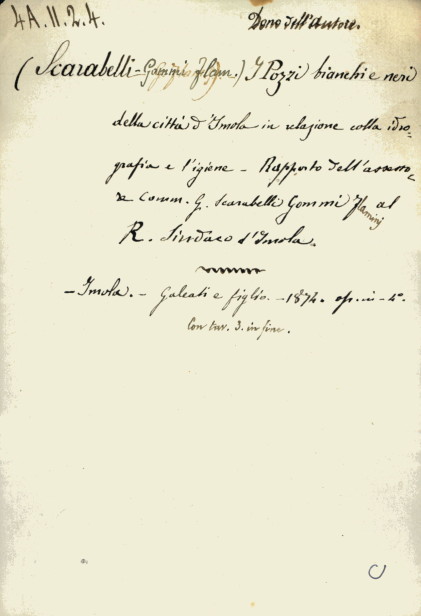 4A.II.2.4.
Dono dell'Autore.
(Scarabelli-Gommi Flam.) I Pozzi bianchi e neri
della città d'Imola in relazione colla idro-
grafia e l'igiene - Rapporto dell'assesso-
re Comm. G. Scarabelli Gommi Flamini al
R. Sindaco d'Imola.
- Imola. - Galeati e figlio. - 1874. op. in - 4°.
Con tav. 3. in fine.